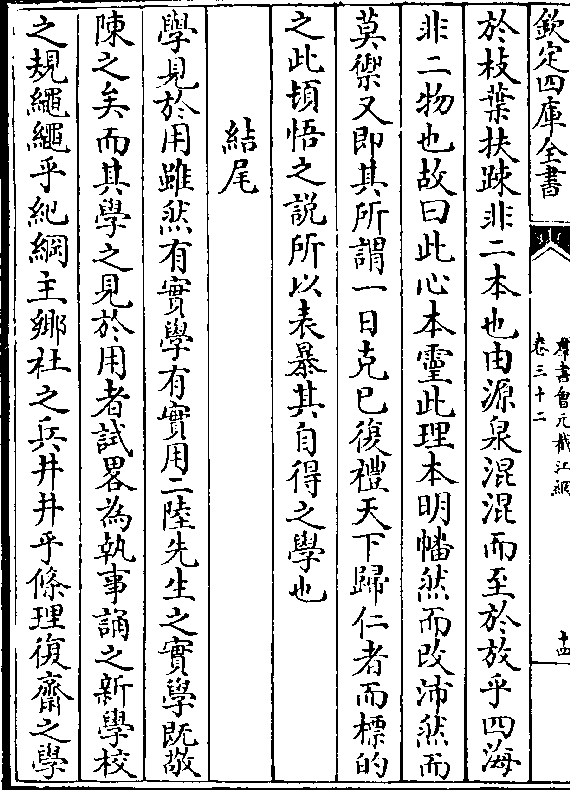 欽定四庫全書
羣書會元截江網
卷三十二
十四
於枝葉扶踈非二本也由源泉混混而至於放乎四海
非二物也故曰此心本靈此理本明幡然而改沛然而
莫禦又即其所謂一日克已復禮天下歸仁者而標的
之此頓悟之説所以表暴其自得之學也
結尾
學見於用雖然有實學有實用二陸先生之實學既敬
陳之矣而其學之見於用者試畧為執事誦之新學校
之規繩繩乎紀綱主鄉社之兵井井乎條理復齋之學